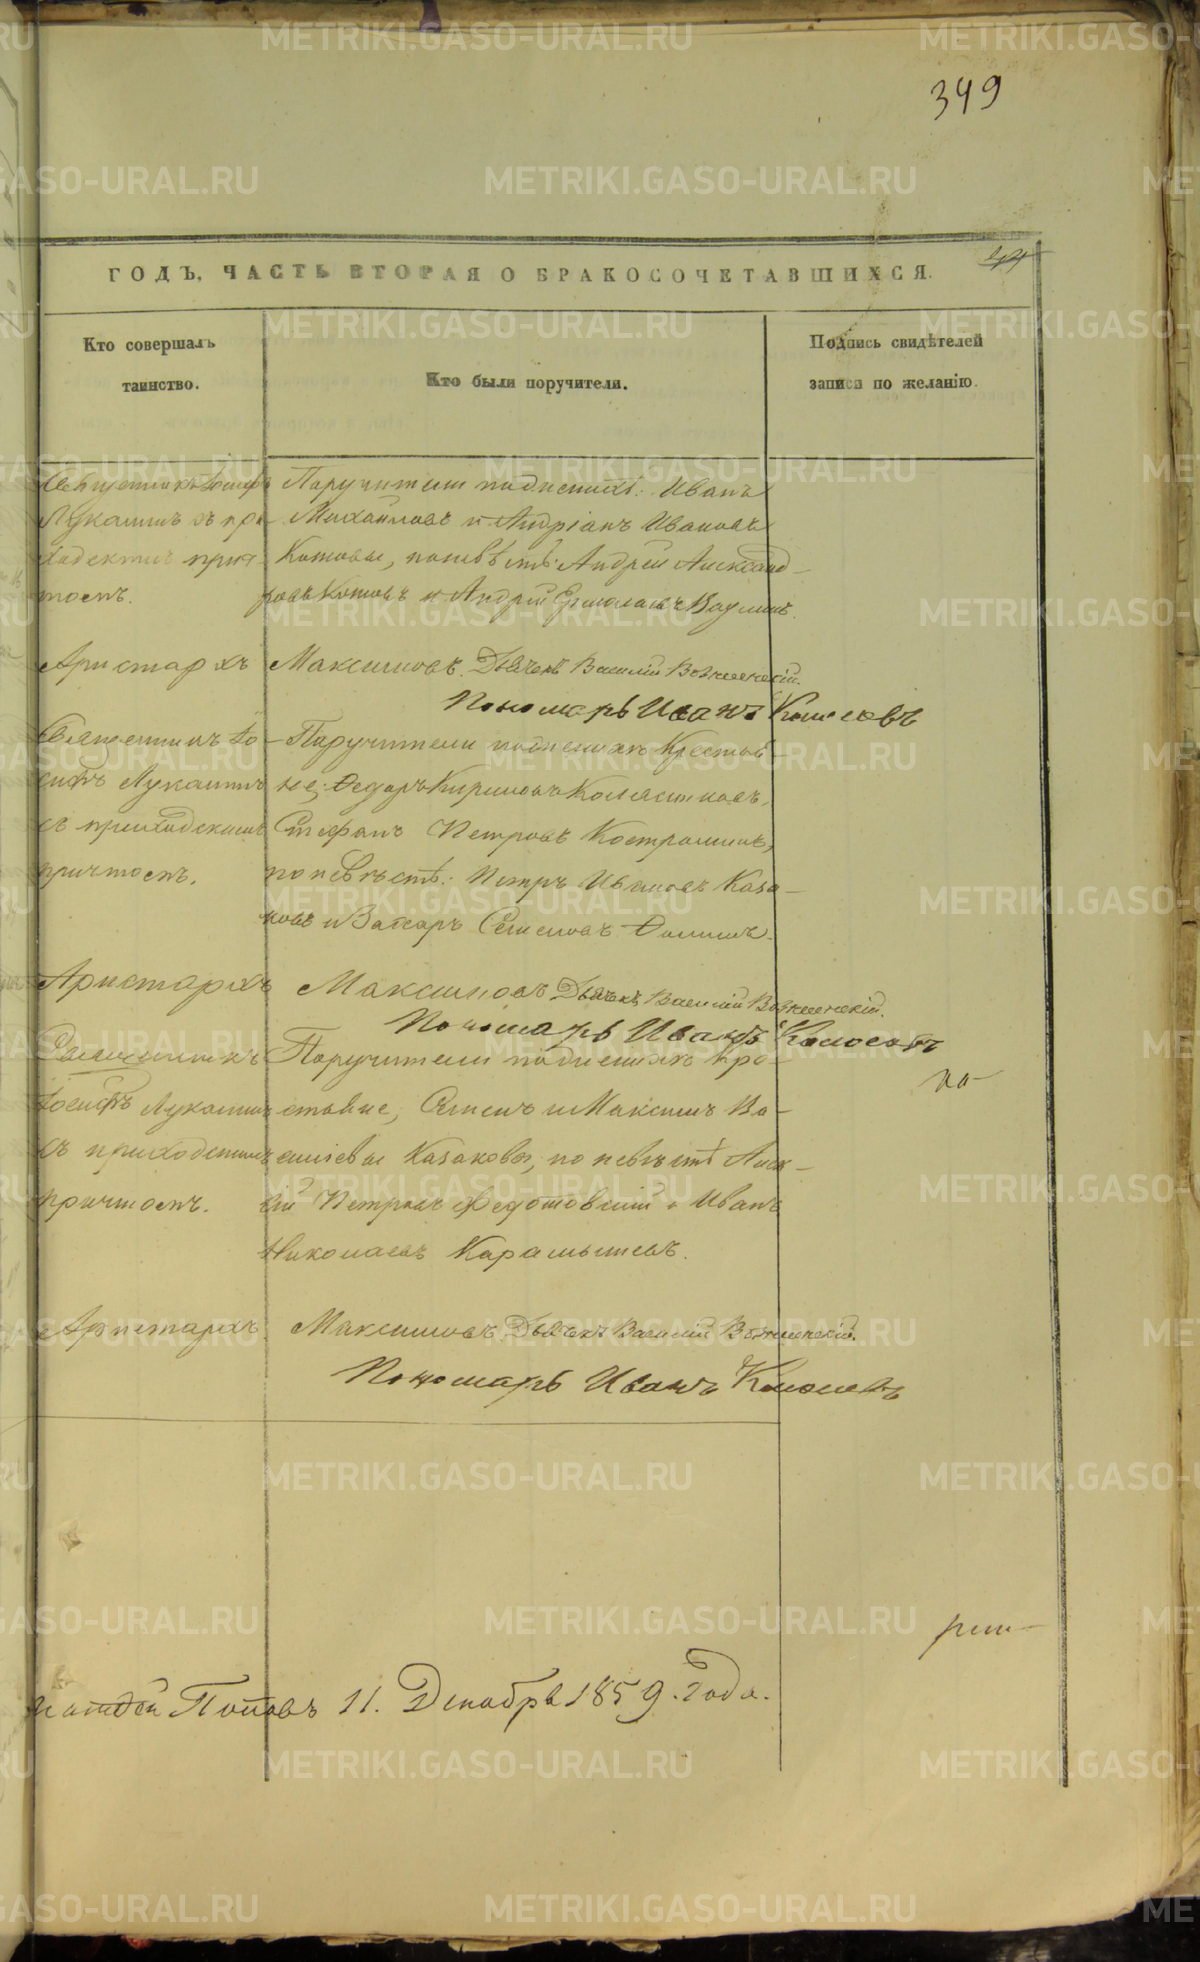 349
44
ГОДЪ, ЧАСТЬ ВТОРАЯ О БРАКОСОЧЕТАВШИХСЯ.
Кто совершалъ
таинство.
Кто были поручители.
Подпись свидѣтелей
записи по желанію.
Священникъ Іосифъ
Лукашинъ съ при-
ходскимъ прич-
томъ.
Поручители по женихѣ: Иванъ
Михайловъ и Андріанъ Ивановъ
Котовы, по невѣстѣ: Андрей Александ-
ровъ Котовъ и Андрей Ермолаевъ
Аристархъ Максимовъ. Дьячекъ Василій Вознесенскій.
Пономарь Иванъ
Священникъ Іо-
сифъ Лукашинъ
съ приходскимъ
причтомъ.
Поручители по женихѣ Крестьян
не; Федоръ Кириловъ
Стефанъ Петровъ Костроминъ,
по невѣстѣ: Петръ Ивановъ Каза-
ковъ и Семеновъ
Аристархъ Максимовъ Дьячекъ Василій Вознесенскій.
Пономарь Иванъ
Священникъ
Іосифъ Лукашинъ
съ приходскимъ
причтомъ.
Поручители по женихѣ кре-
стьяне, Семенъ и Максимъ Ва-
сильевы Казаковы, по невѣстѣ Алек-
сѣй Петровъ Федотовскій и Иванъ
Николаевъ Карамышевъ.
Аристархъ Максимовъ Дьячекъ Василій Вознесенскій.
Пономарь Иванъ
по-
Поповъ 11. Декабря 1859. Года.
METRIKI.GASO-URAL.RU